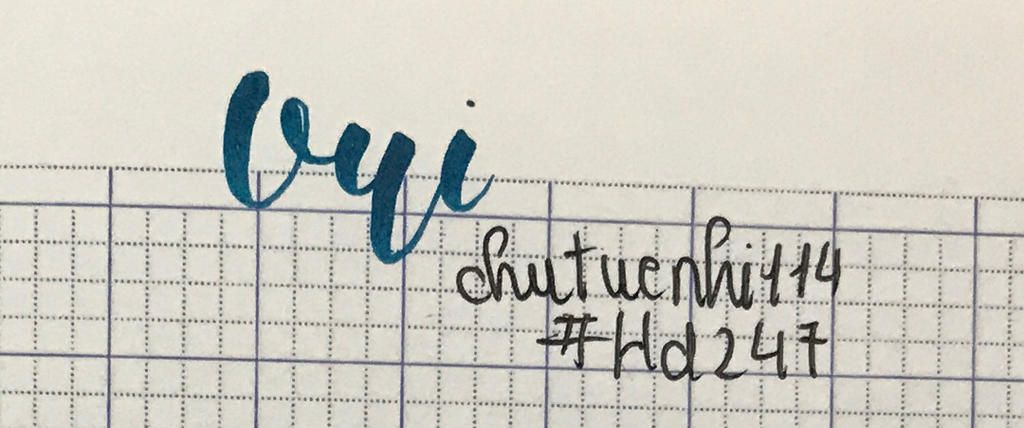 Vyi
chutuenhi114
#Hd247